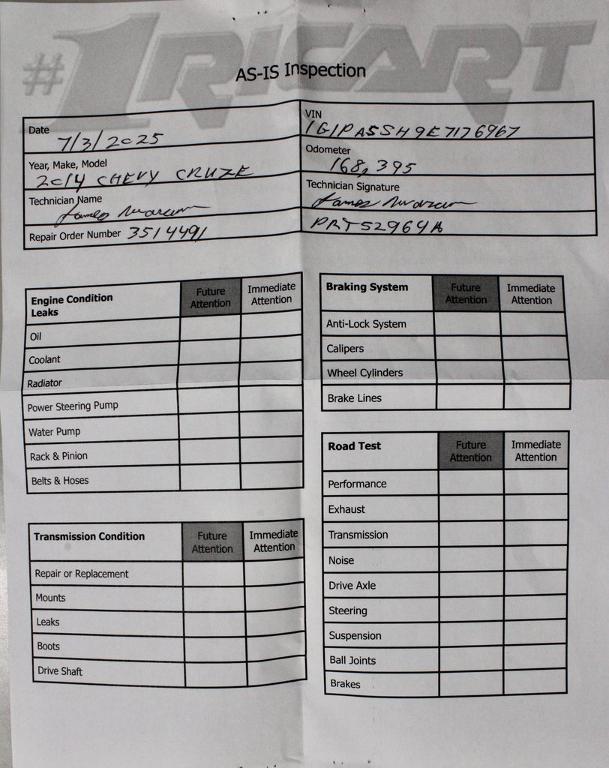 #1 RICART
AS-IS Inspection
Date 7/3/2025
VIN 1G1PA5SH9E7176967
Year, Make, Model 2014 CHEVY CRUZE
Odometer 168,395
Technician Name James
Technician Signature James
Repair Order Number 3514491
PRT52964A
Engine Condition Leaks Future Attention Immediate Attention
Oil
Coolant
Radiator
Power Steering Pump
Water Pump
Rack & Pinion
Belts & Hoses
Transmission Condition Future Attention Immediate Attention
Repair or Replacement
Mounts
Leaks
Boots
Drive Shaft
Braking System Future Attention Immediate Attention
Anti-Lock System
Calipers
Wheel Cylinders
Brake Lines
Road Test Future Attention Immediate Attention
Performance
Exhaust
Transmission
Noise
Drive Axle
Steering
Suspension
Ball Joints
Brakes